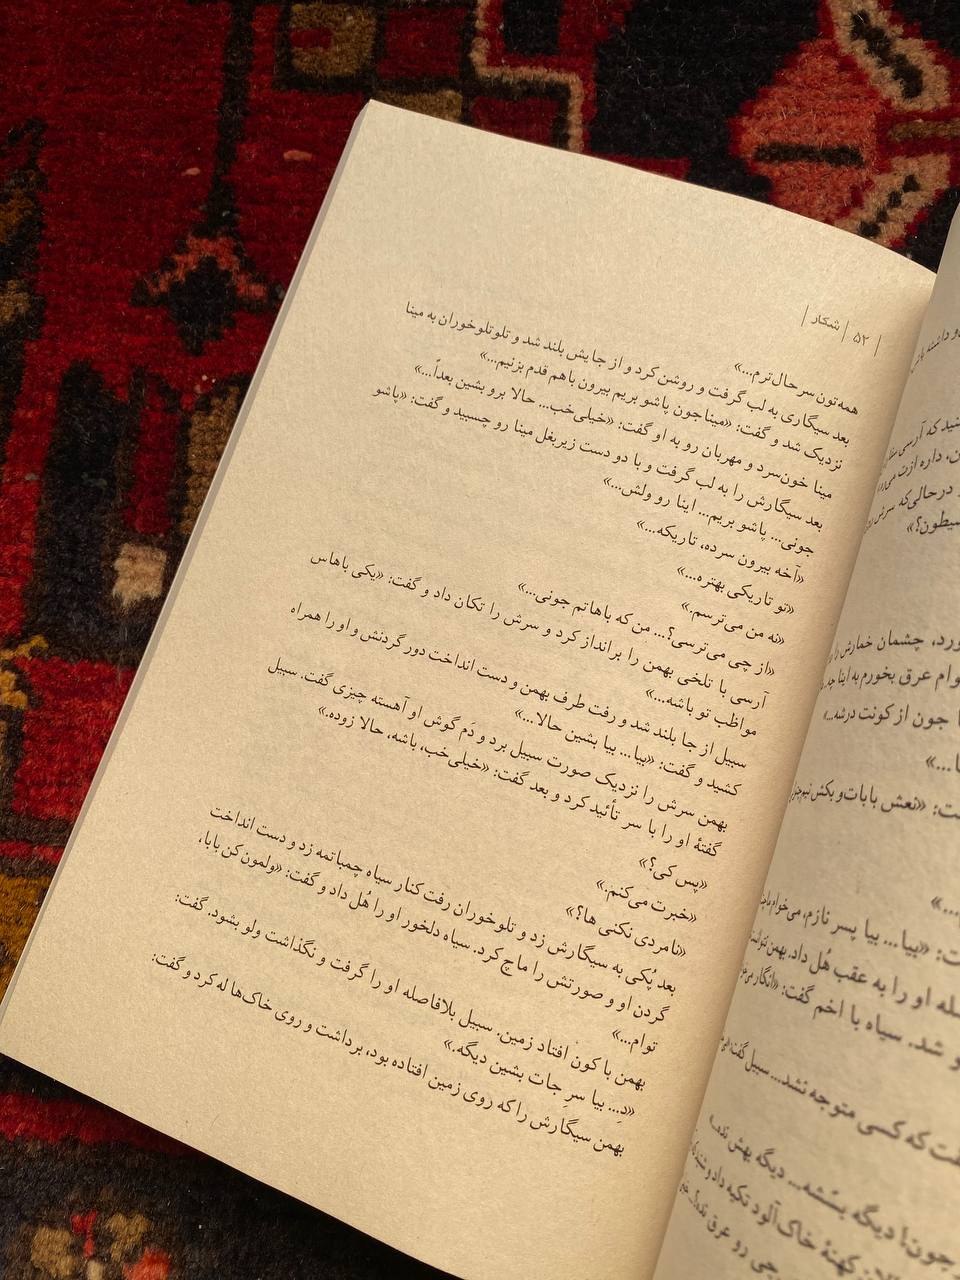 | ۵۲ | شکار |
همه‌تون سر حال‌ترم...»
بعد سیگاری به لب گرفت و روشن کرد و از جایش بلند شد و تلوتلوخوران به مینا
نزدیک شد و گفت: «مینا جون پاشو بریم بیرون باهم قدم بزنیم...»
مینا خون‌سرد و مهربان رو به او گفت: «خیلی‌خب... حالا برو بشین بعداً...»
بعد سیگارش را به لب گرفت و با دو دست زیربغل مینا رو چسبید و گفت: «پاشو
جونی... پاشو بریم... اینا رو ولش...»
«آخه بیرون سرده، تاریکه...»
«تو تاریکی بهتره...»
«نه من می‌ترسم.»
«از چی می‌ترسی؟... من که باهاتم جونی...»
آرسی با تلخی بهمن را برانداز کرد و سرش را تکان داد و گفت: «یکی باهاس
مواظب تو باشه...»
سبیل از جا بلند شد و رفت طرف بهمن و دست انداخت دور گردنش و او را همراه
کشید و گفت: «بیا... بیا بشین حالا...»
بهمن سرش را نزدیک صورت سبیل برد و دَم گوش او آهسته چیزی گفت. سبیل
گفتهٔ او را با سر تأئید کرد و بعد گفت: «خیلی‌خب، باشه، حالا زوده.»
«پس کی؟»
«خبرت می‌کنم.»
«نامردی نکنی ها؟»
بعد پُکی به سیگارش زد و تلوخوران رفت کنار سیاه چمباتمه زد و دست انداخت
گردن او و صورتش را ماچ کرد. سیاه دلخور او را هُل داد و گفت: «ولمون کن بابا،
توام»
بهمن با کون افتاد زمین. سبیل بلافاصله او را گرفت و نگذاشت ولو بشود. گفت:
«دِ... بیا سرِ جات بشین دیگه.»
بهمن سیگارش را که روی زمین افتاده بود، برداشت و روی خاک‌ها له کرد و گفت:
درحالی‌که سرش
شیطون؟»
چشمان خمارش را
عرق بخورم به اینا چه
جون از کونت درشه...»
«نعش بابات‌و بکش
«بیا... بیا پسر نازم، می‌خوام
او را به عقب هُل داد. بهمن
شد. سیاه با اخم گفت: «انگار
که کسی متوجه نشد... سبیل گفت:
دیگه بسّشه... دیگه بهش
کهنهٔ خاک‌آلود تکیه داد و